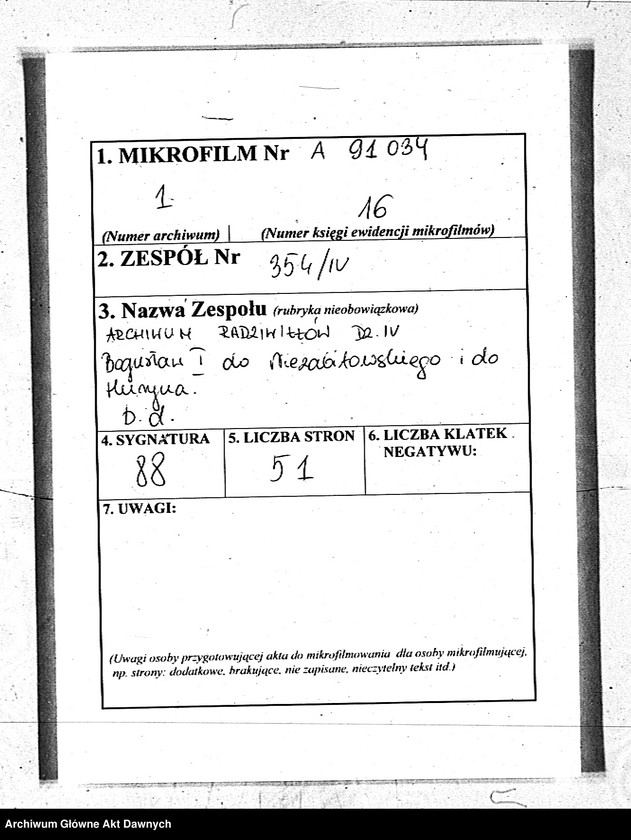 1. MIKROFILM Nr A 91 034
1 16
(Numer archiwum) (Numer księgi ewidencji mikrofilmów)
2. ZESPÓŁ Nr 354/IV
3. Nazwa Zespołu (rubryka nieobowiązkowa)
ARCHIWUM RADZIWIŁŁÓW DZ. IV
Bogusław I do Niezabitowskiego i do
b.d.
4. SYGNATURA 5. LICZBA STRON 6. LICZBA KLATEK
NEGATYWU:
88 51
7. UWAGI:
(Uwagi osoby przygotowującej akta do mikrofilmowania dla osoby mikrofilmującej,
np. strony: dodatkowe, brakujące, nie zapisane, nieczytelny tekst itd.)
Archiwum Główne Akt Dawnych